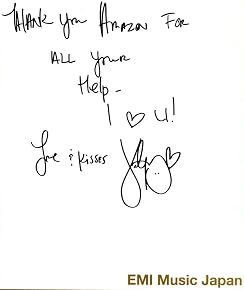 Thank you Amazon For
All your
Help -
I ♡ U!
Love & Kisses
EMI Music Japan